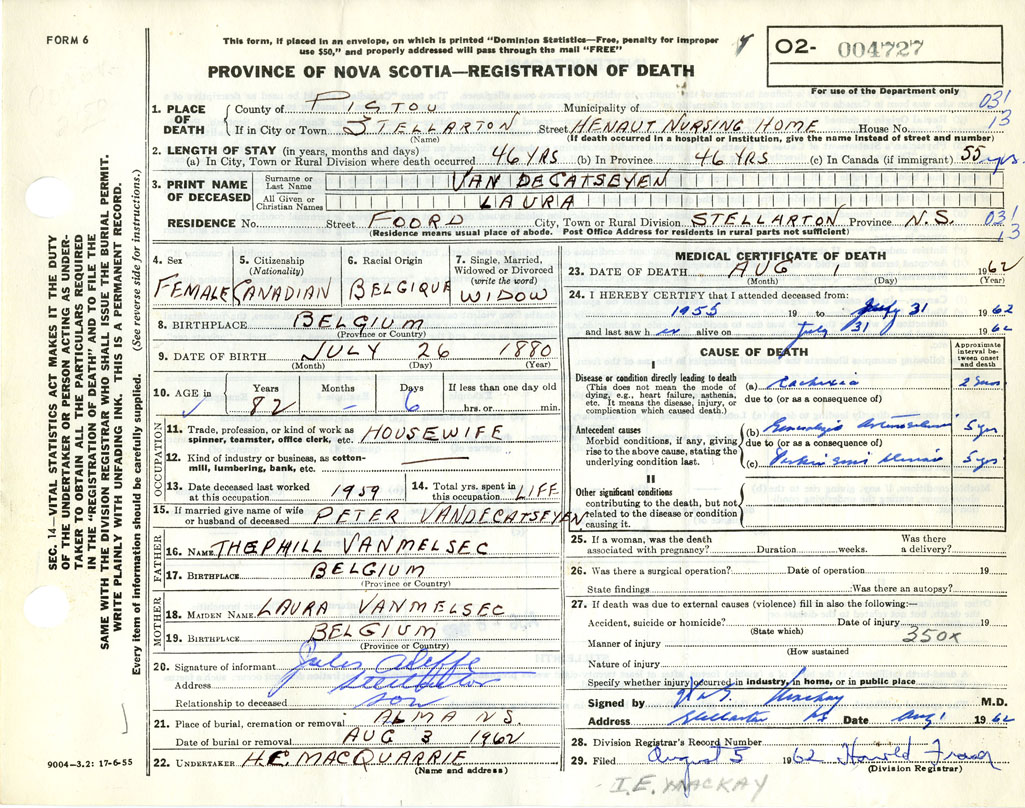 FORM 6
This form, if placed in an envelope, on which is printed "Dominion Statistics—Free, penalty for improper
use $50," and properly addressed will pass through the mail "FREE"
PROVINCE OF NOVA SCOTIA—REGISTRATION OF DEATH
O2- 004727
For use of the Department only
1. PLACE OF DEATH County of PICTOU Municipality of 031
If in City or Town STELLARTON Street HENAUT NURSING HOME House No. 13
(Name) (If death occurred in a hospital or institution, give the name instead of street and number)
2. LENGTH OF STAY (in years, months and days)
(a) In City, Town or Rural Division where death occurred 46 YRS (b) In Province 46 YRS (c) In Canada (if immigrant) 55 yrs.
3. PRINT NAME OF DECEASED Surname or Last Name VAN DECATSEYEN
All Given or Christian Names LAURA
RESIDENCE No. Street FOORD City, Town or Rural Division STELLARTON Province N.S. 031
(Residence means usual place of abode. Post Office Address for residents in rural parts not sufficient) 13
4. Sex FEMALE
5. Citizenship (Nationality) CANADIAN
6. Racial Origin BELGIQUE
7. Single, Married, Widowed or Divorced (write the word) WIDOW
8. BIRTHPLACE BELGIUM
(Province or Country)
9. DATE OF BIRTH JULY 26 1880
(Month) (Day) (Year)
10. AGE in Years 82 Months – Days 6 If less than one day old hrs. or min.
OCCUPATION
11. Trade, profession or kind of work as spinner, teamster, office clerk, etc. HOUSEWIFE
12. Kind of industry or business, as cotton-mill, lumbering, bank, etc. —
13. Date deceased last worked at this occupation 1959
14. Total yrs. spent in this occupation LIFE
15. If married give name of wife or husband of deceased PETER VANDECATSEYEN
FATHER
16. NAME THEPHILL VANMELSEC
17. BIRTHPLACE BELGIUM
(Province or Country)
MOTHER
18. MAIDEN NAME LAURA VANMELSEC
19. BIRTHPLACE BELGIUM
(Province or Country)
20. Signature of informant Jules
Address Stellarton
Relationship to deceased son
21. Place of burial, cremation or removal ALMA N.S.
Date of burial or removal AUG 3 1962
22. UNDERTAKER H.C. MACQUARRIE
(Name and address)
MEDICAL CERTIFICATE OF DEATH
23. DATE OF DEATH AUG 1 1962
(Month) (Day) (Year)
24. I HEREBY CERTIFY that I attended deceased from:
1955 19 to July 31 1962
and last saw her alive on July 31 1962
CAUSE OF DEATH
Approximate interval between onset and death
I
Disease or condition directly leading to death
(This does not mean the mode of dying, e.g., heart failure, asthenia, etc. It means the disease, injury, or complication which caused death.)
(a) Cachexia 2
due to (or as a consequence of)
Antecedent causes
Morbid conditions, if any, giving rise to the above cause, stating the underlying condition last.
(b) 5 yrs
due to (or as a consequence of)
(c) 5 yrs
II
Other significant conditions
contributing to the death, but not related to the disease or condition causing it.
25. If a woman, was the death associated with pregnancy? Duration weeks. Was there a delivery?
26. Was there a surgical operation? Date of operation 19
State findings Was there an autopsy?
27. If death was due to external causes (violence) fill in also the following:—
Accident, suicide or homicide? Date of injury 19
(State which) 350x
Manner of injury
(How sustained
Nature of injury
Specify whether injury occurred in industry, in home, or in public place
Signed by M.D.
Address Stellarton NS Date Aug 1 1962
28. Division Registrar's Record Number
29. Filed August 5 1962 Harold
(Division Registrar)
I.E. MACKAY
SEC. 14—VITAL STATISTICS ACT MAKES IT THE DUTY
OF THE UNDERTAKER OR PERSON ACTING AS UNDER-
TAKER TO OBTAIN ALL THE PARTICULARS REQUIRED
IN THE "REGISTRATION OF DEATH" AND TO FILE THE
SAME WITH THE DIVISION REGISTRAR WHO SHALL ISSUE THE BURIAL PERMIT.
WRITE PLAINLY WITH UNFADING INK. THIS IS A PERMANENT RECORD.
Every item of information should be carefully supplied. (See reverse side for instructions.)
9004–3.2: 17-6-55